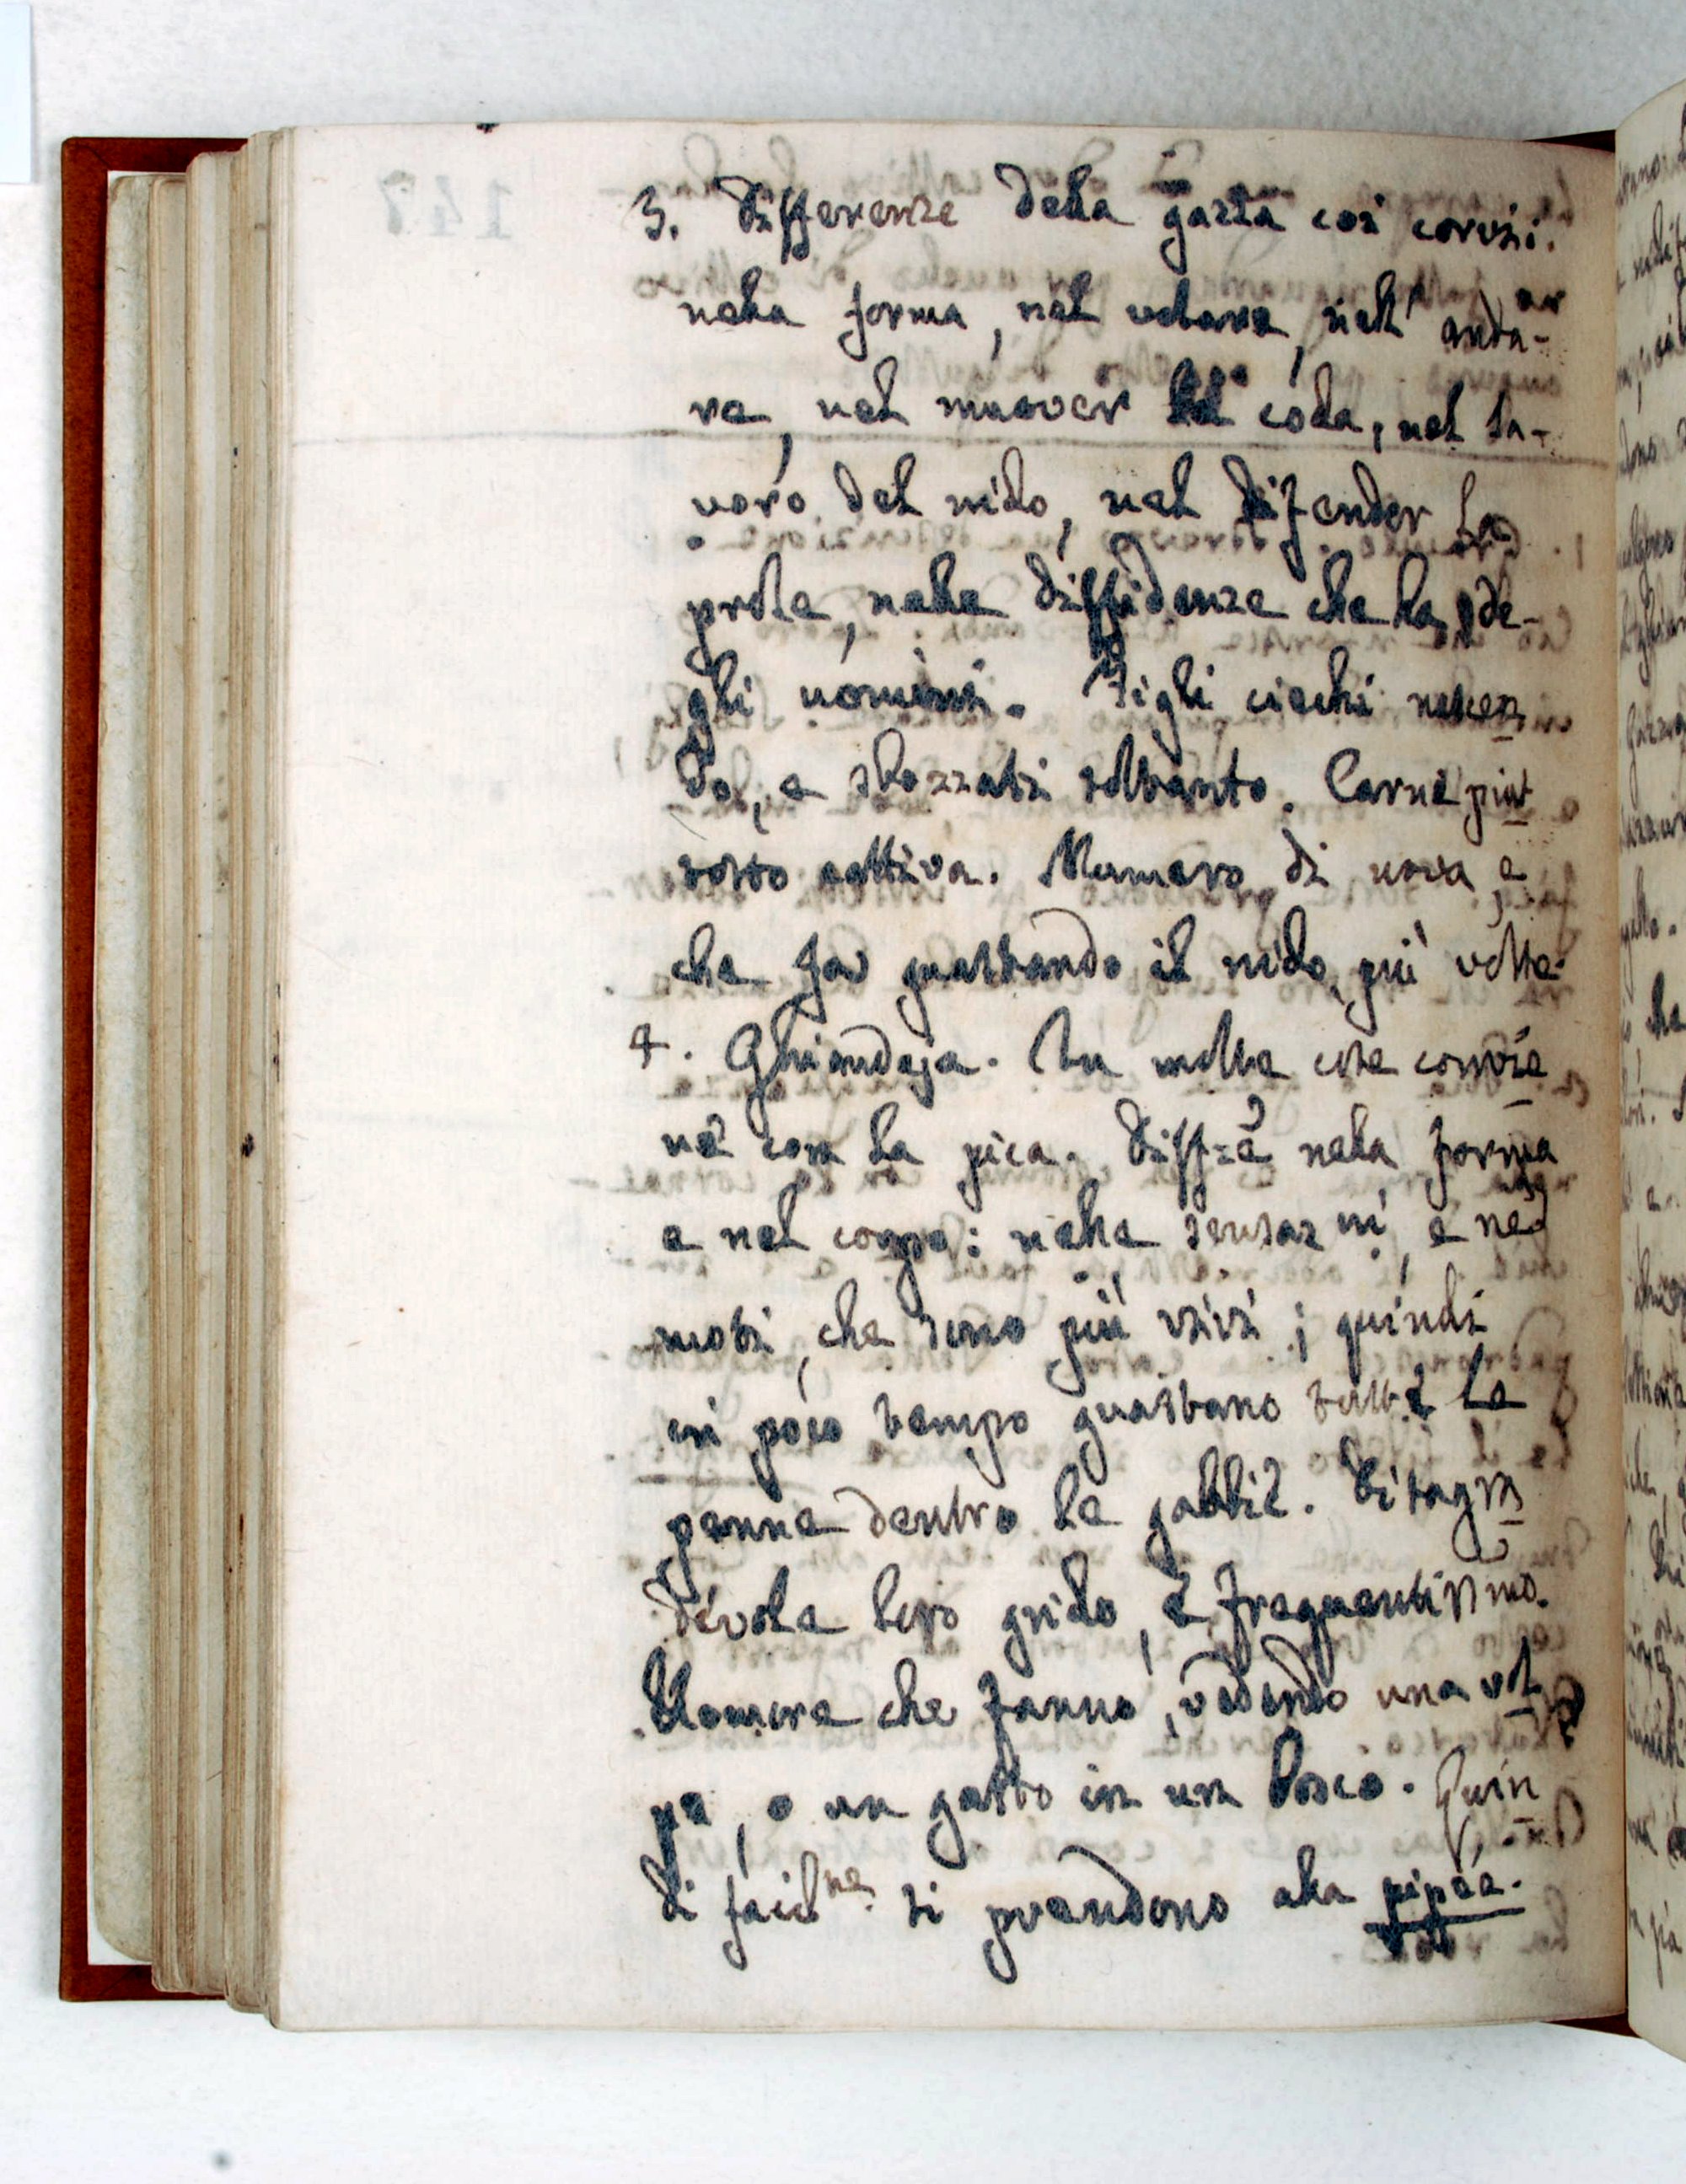 3. Differenze della gazza coi corvi:
nella forma, nel volare, nell' anda-
re, nel muover la coda, nel la-
voro del nido, nel difender la
prole, nella diffidenza che ha de-
gli uomini. Figli ciechi nascen
do, e sbozzati soltanto. Carne piut
tosto cattiva. Numero di uova, e
che fa guastando il nido più volte.
4. Ghiandaja. In molte cose convie
ne con la pica. Diff-a nella forma
e nel corpo: nelle sensaz ni, e ne
moti, che sono più vivi; quindi
in poco tempo guastano tutte le
penne dentro le gabbie. Disagra
devole loro grido, e frequentissimo.
Rumore che fanno, vedendo una vol
pe, o un gatto in un bosco. Quin
di facil ne si prendono alla pipèe.